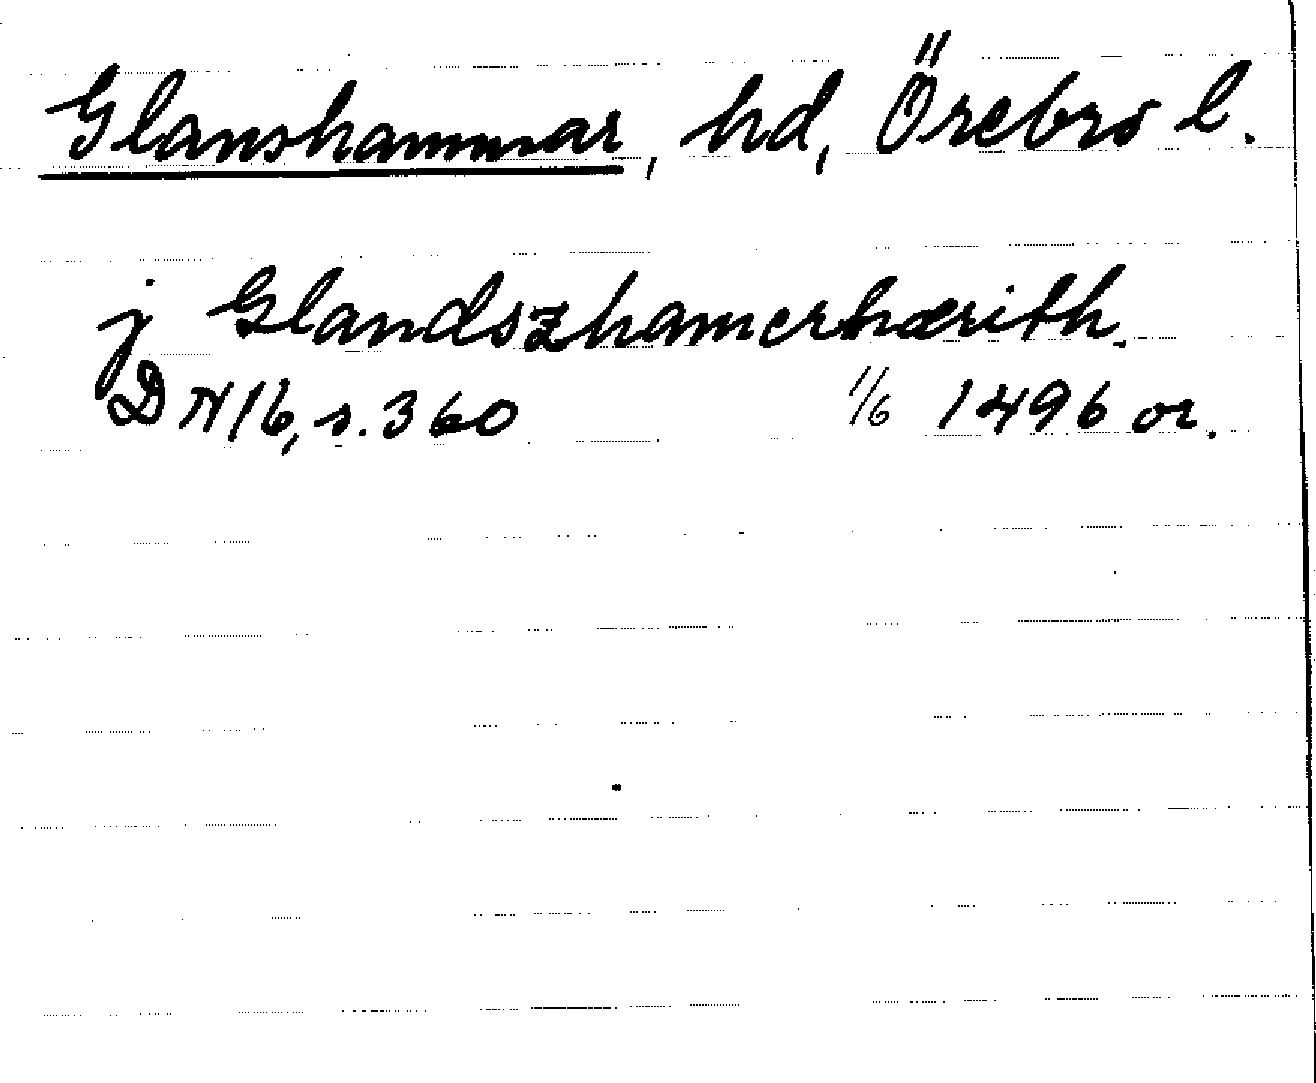 Glanshammar, hd, Örebro l.
j Glandszhamerhærith.
DN 16, s. 360 1/6 1496 or.